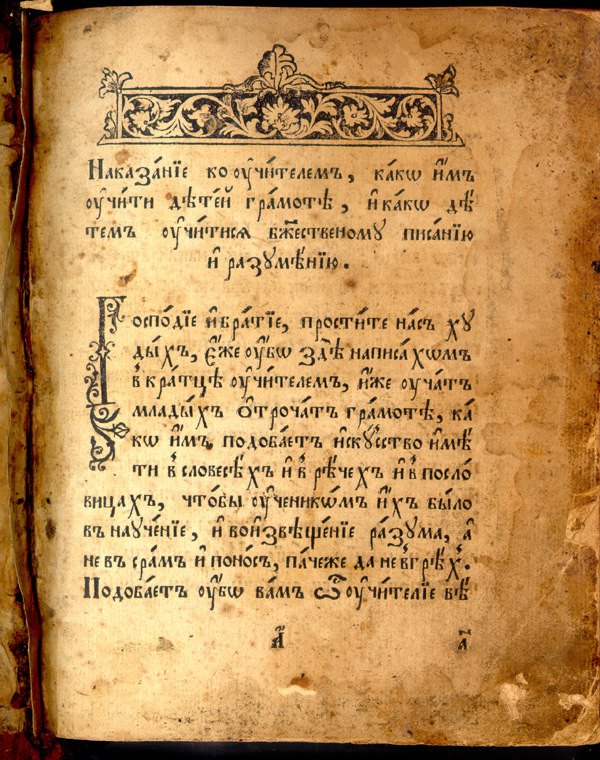 Наказа́нїе ко ᲂу҆чи́телемъ, ка́кѡ и҆̀мъ
ᲂу҆чи́ти дѣте́й гра́мотѣ, и҆ ка́кѡ дѣ́
темъ ᲂу҆чи́тисѧ бж҃е́ственому писа́нїю
и҆ разꙋмѣ́нїю.
Госпо́дїе и҆ бра́тїе, прости́те на́съ хꙋ
ды́хъ, є҆́же ᲂу҆́бѡ здѣ̀ написа́хѡмъ
в҆кра́тцѣ ᲂу҆чи́телемъ, и҆́же ᲂу҆ча́тъ
млады́хъ ѻ҆троча́тъ гра́мотѣ, ка́
кѡ и҆̀мъ подоба́етъ и҆скꙋ́сство и҆мѣ́
ти в҆ словесѣ́хъ и҆ в҆ рѣ́чехъ и҆ в҆ посло́
вицахъ, что́бы ᲂу҆ченикѡ́мъ и҆́хъ бы́ло
въ наꙋче́нїе, и҆ во и҆звѣще́нїе ра́зꙋма, а҆
не въ сра́мъ и҆ поно́съ, па́чеже да не в҆ грѣ́хъ.
Подоба́етъ ᲂу҆́бѡ ва́мъ ѽ ᲂу҆чи́телїе вѣ́
а҃ а҃